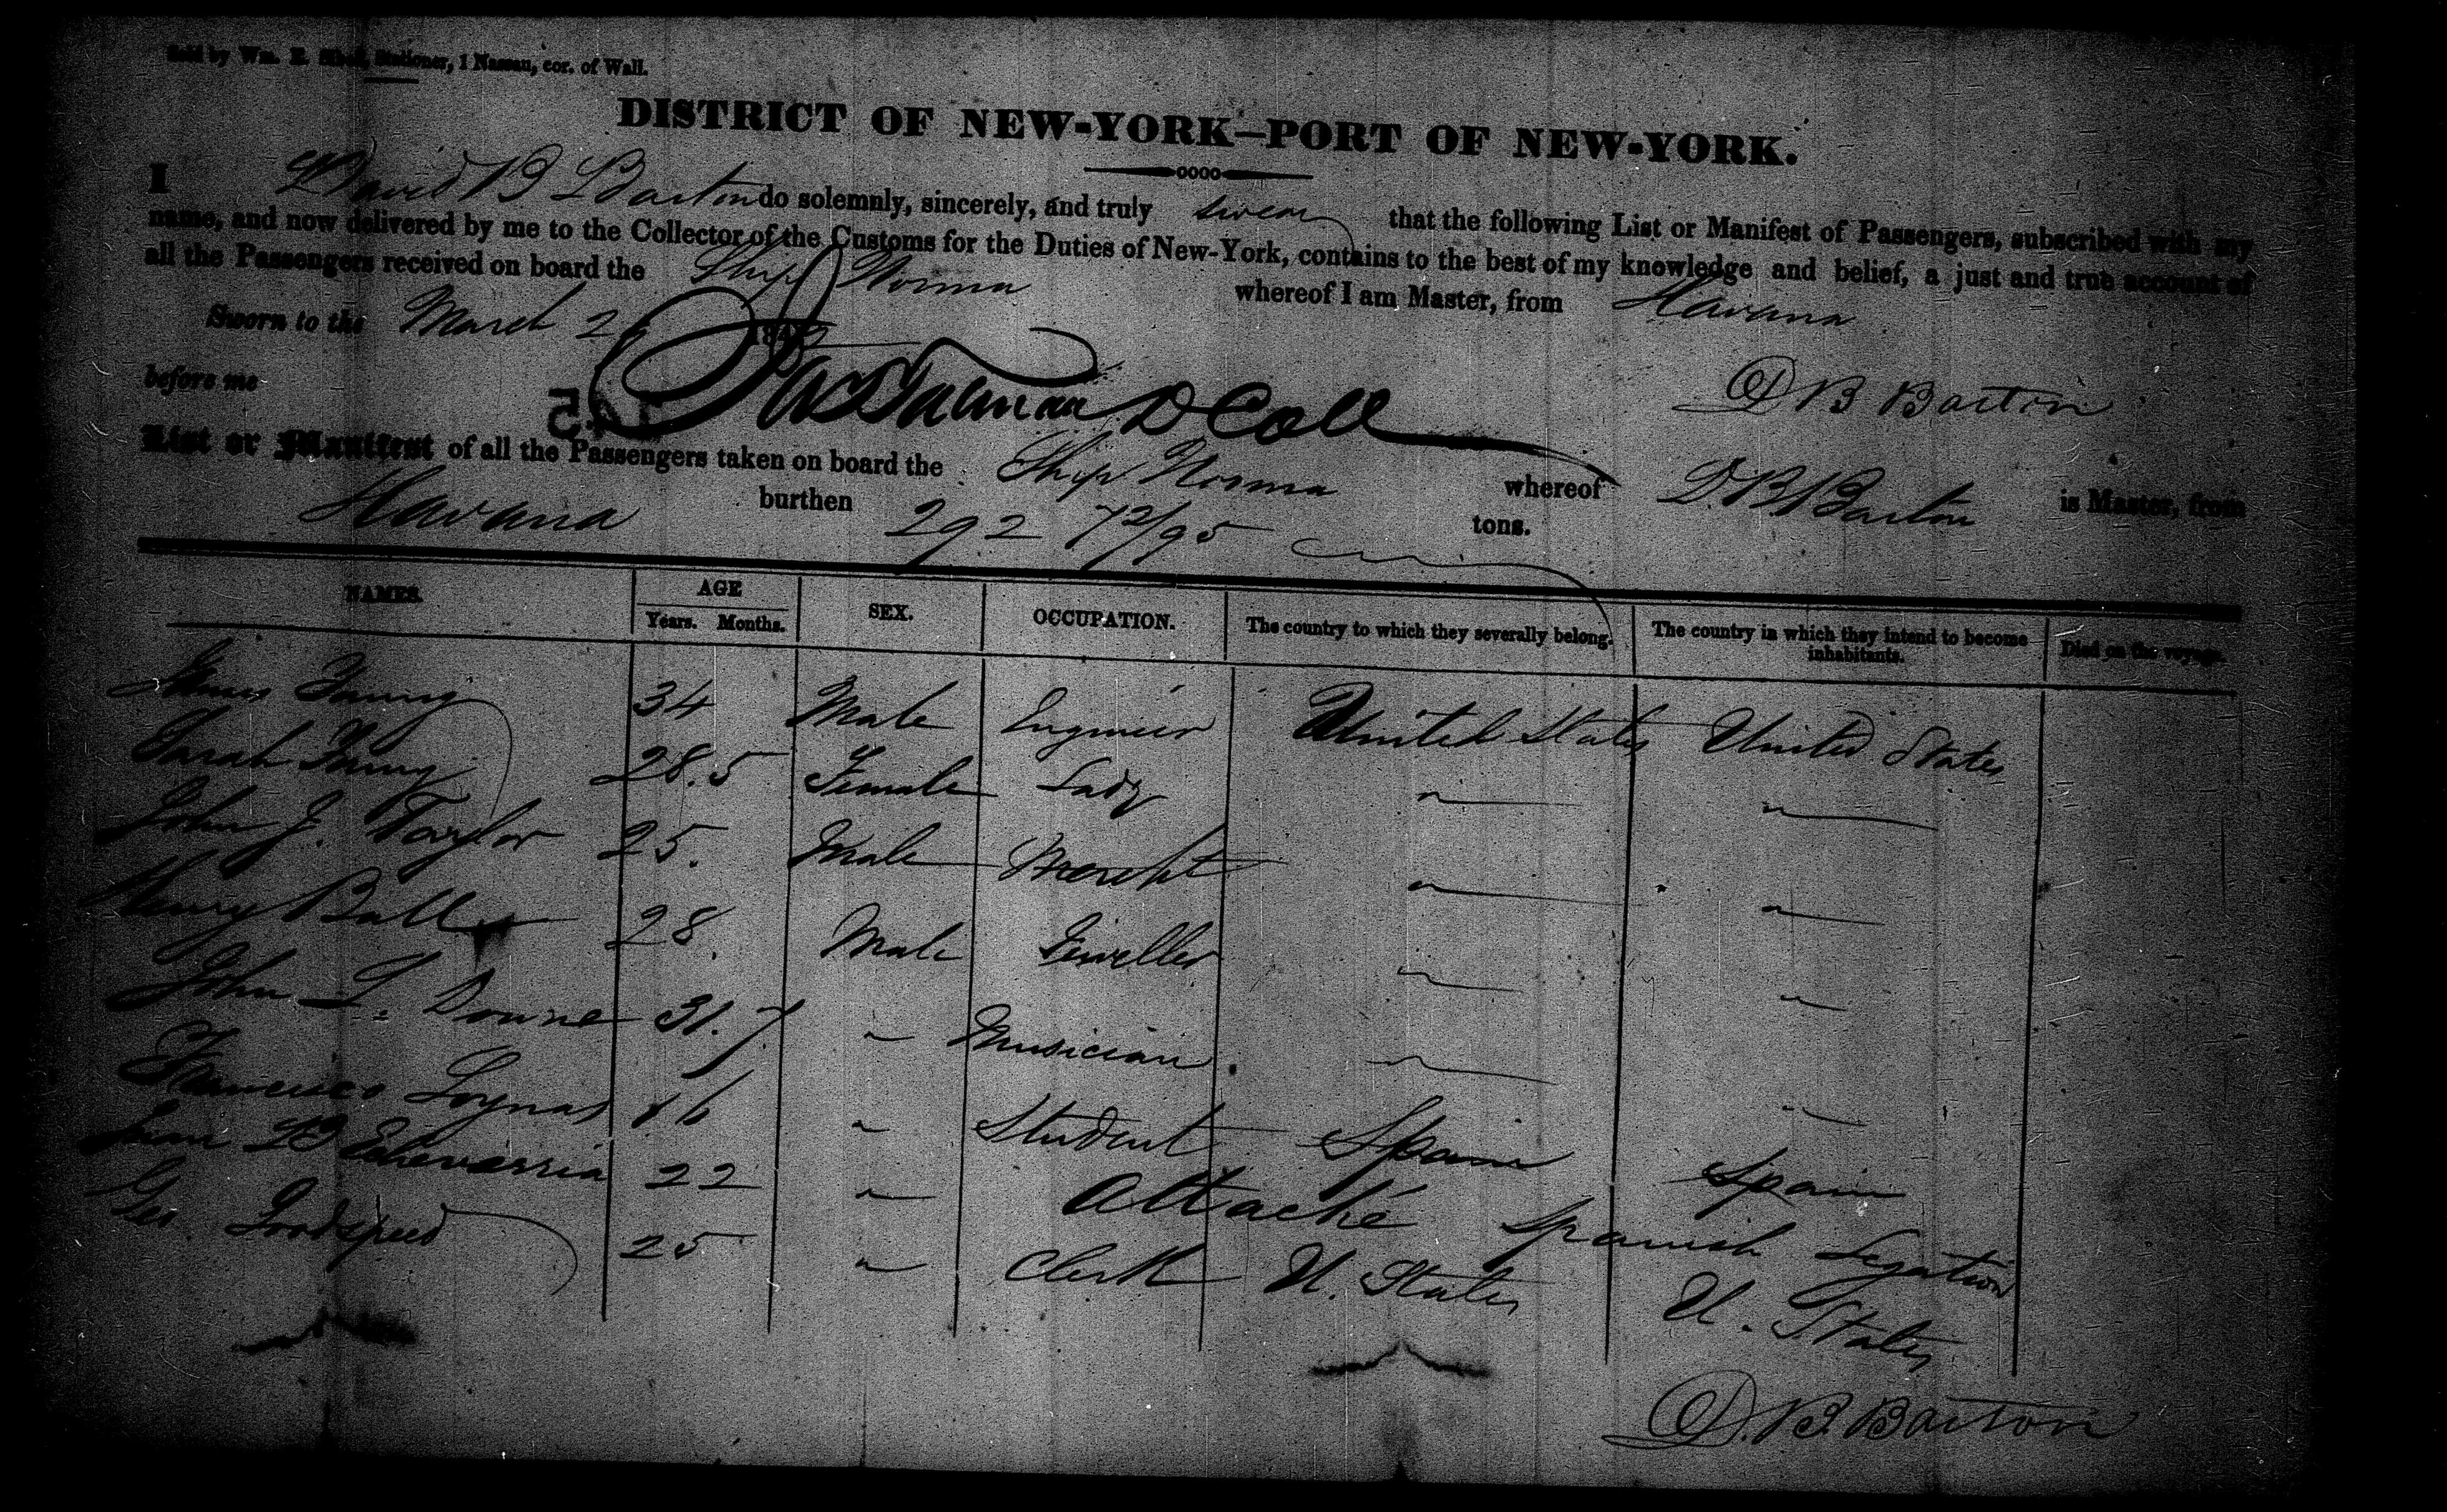 Sold by Wm. E. Stationer, 1 Nassau, cor. of Wall.
DISTRICT OF NEW-YORK—PORT OF NEW-YORK.
I David B Barton do solemnly, sincerely, and truly swear that the following List or Manifest of Passengers, subscribed with my
name, and now delivered by me to the Collector of the Customs for the Duties of New-York, contains to the best of my knowledge and belief, a just and true account of
all the Passengers received on board the Ship Norma whereof I am Master, from Havana
Sworn to the March 184
before me D Coll D B Barton
List or Manifest of all the Passengers taken on board the Ship Norma whereof D. B. Barton is Master, from
Havana burthen 292 72/95 tons.
NAMES. AGE SEX. OCCUPATION. The country to which they severally belong. The country in which they intend to become inhabitants. Died on the voyage.
Years. Months.
34 Male Engineer United States United States
Sarah 28.5 Female Lady " "
John J. Taylor 25. Male Mercht " "
Henry Ball 28. Male Jeweller " "
John 31.7 " Musician " "
Francisco 16 " Student Spain Spain
Juan B Echevarria 22 " Attaché Spanish Legation
Geo Goodspeed 25 " Clerk U. States U. States
D. B. Barton